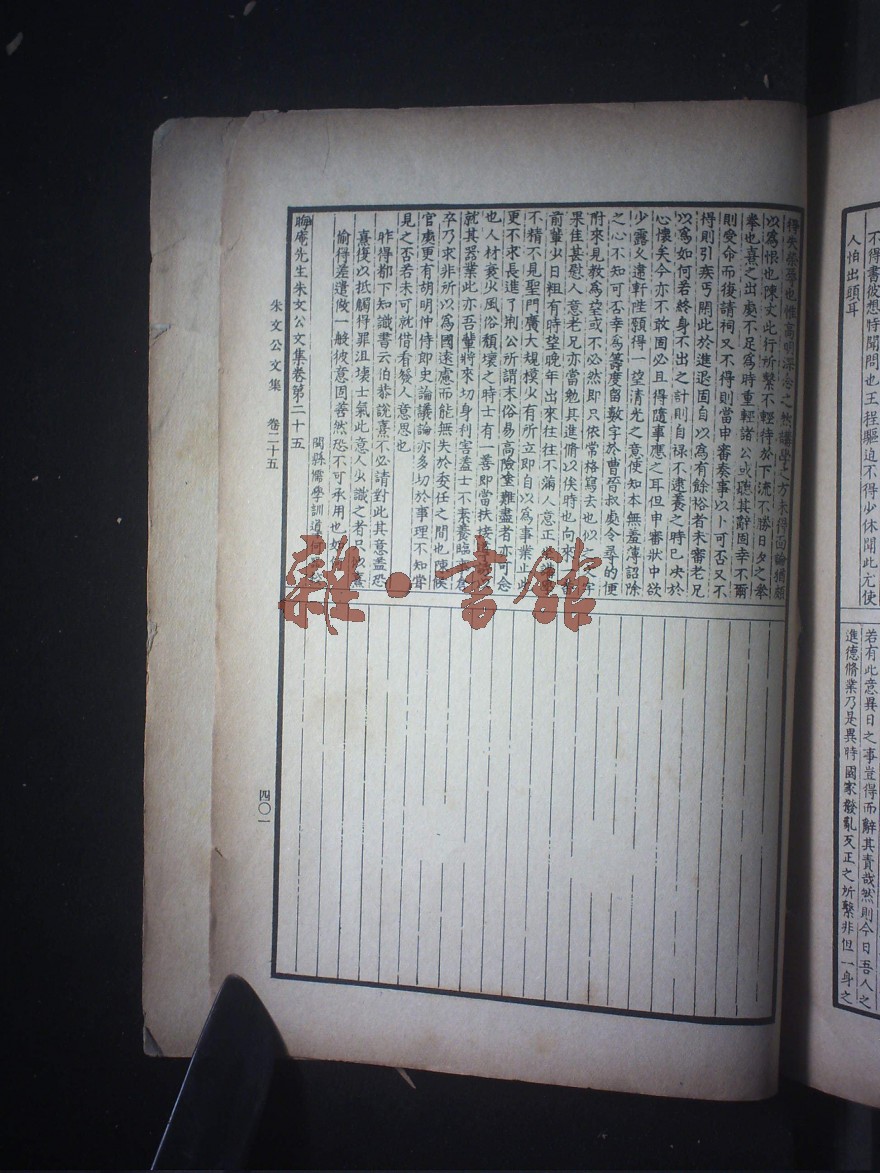 不得書彼想時聞問也王程驅迫不得少休閒此尤使
人怕出頭耳
若有此意異日之事豈得而辭其責哉然則今日吾人之
進德脩業乃是異時國家撥亂反正之所繫非但一身之
得失榮辱也惟高明深念之熹講學之方未得面論猶頗
以為恨也陳丈此行所繫不輕待於下流不勝日夕之拳
拳也熹之出處不足為時重輕諸公或聽其辭固幸不爾
則受命而復請祠又不得則當申審奏事以卜可否又不
得則引疾丐閒此於進退固自以為有餘裕者未審老兄
以為如何若終身不出之計則自祿不逮養之時已决於
心懷矣今亦不敢固必且得隨事應之耳但申審狀中欲
少露久違軒陛願得一望清光之意使知本無羞薄詔除
之心不知可否幸為籌度留數字於曹晉叔處令尋的便
附來見教為望或不必然即只依常格寫去也以之
果佳甚慰人意老兄亦當勉其進脩以俟時也向來
前輩少日粗有時望晚年出來往往不滿人意正
不精不見聖門廣大規模少有所立即自以為事業止此
更不求長進了荆公所謂末俗易高險塗難盡者亦可念
也人材衰少風俗頹壞之時士有一善即當扶接
就其器業此亦吾輩將來切身利害蓋士不素養臨
卒乃求非所以為國遠慮而能無失於委任之間也陳侯
官處更有胡明仲侍郎史論議論亦多切於事理不知嘗
見之否若未可就借看發人意思也
昨得都下知識書云伯恭說熹不必請對此其意蓋恐
熹復以抵觸得罪沮壞士氣此意人少識之者只以熹
偷得差遣做一般彼意固善然恐不可承用也如
閩縣儒學訓導何
晦庵先生朱文公文集卷第二十五
朱文公文集 卷二十五
四〇一
雜·書館